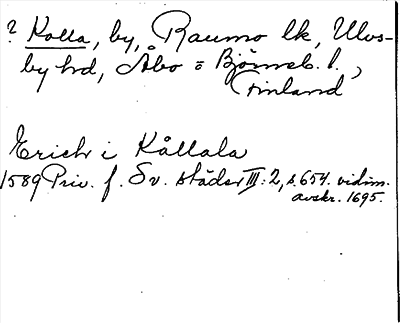 ? Kolla, by, Raumo lk, Ulvs-
by hrd, Åbo o Björneb. l.,
Finland
Erich i Kållala
1589 Priv. f. Sv. städer III:2, s. 654. vidim.
avskr. 1695.